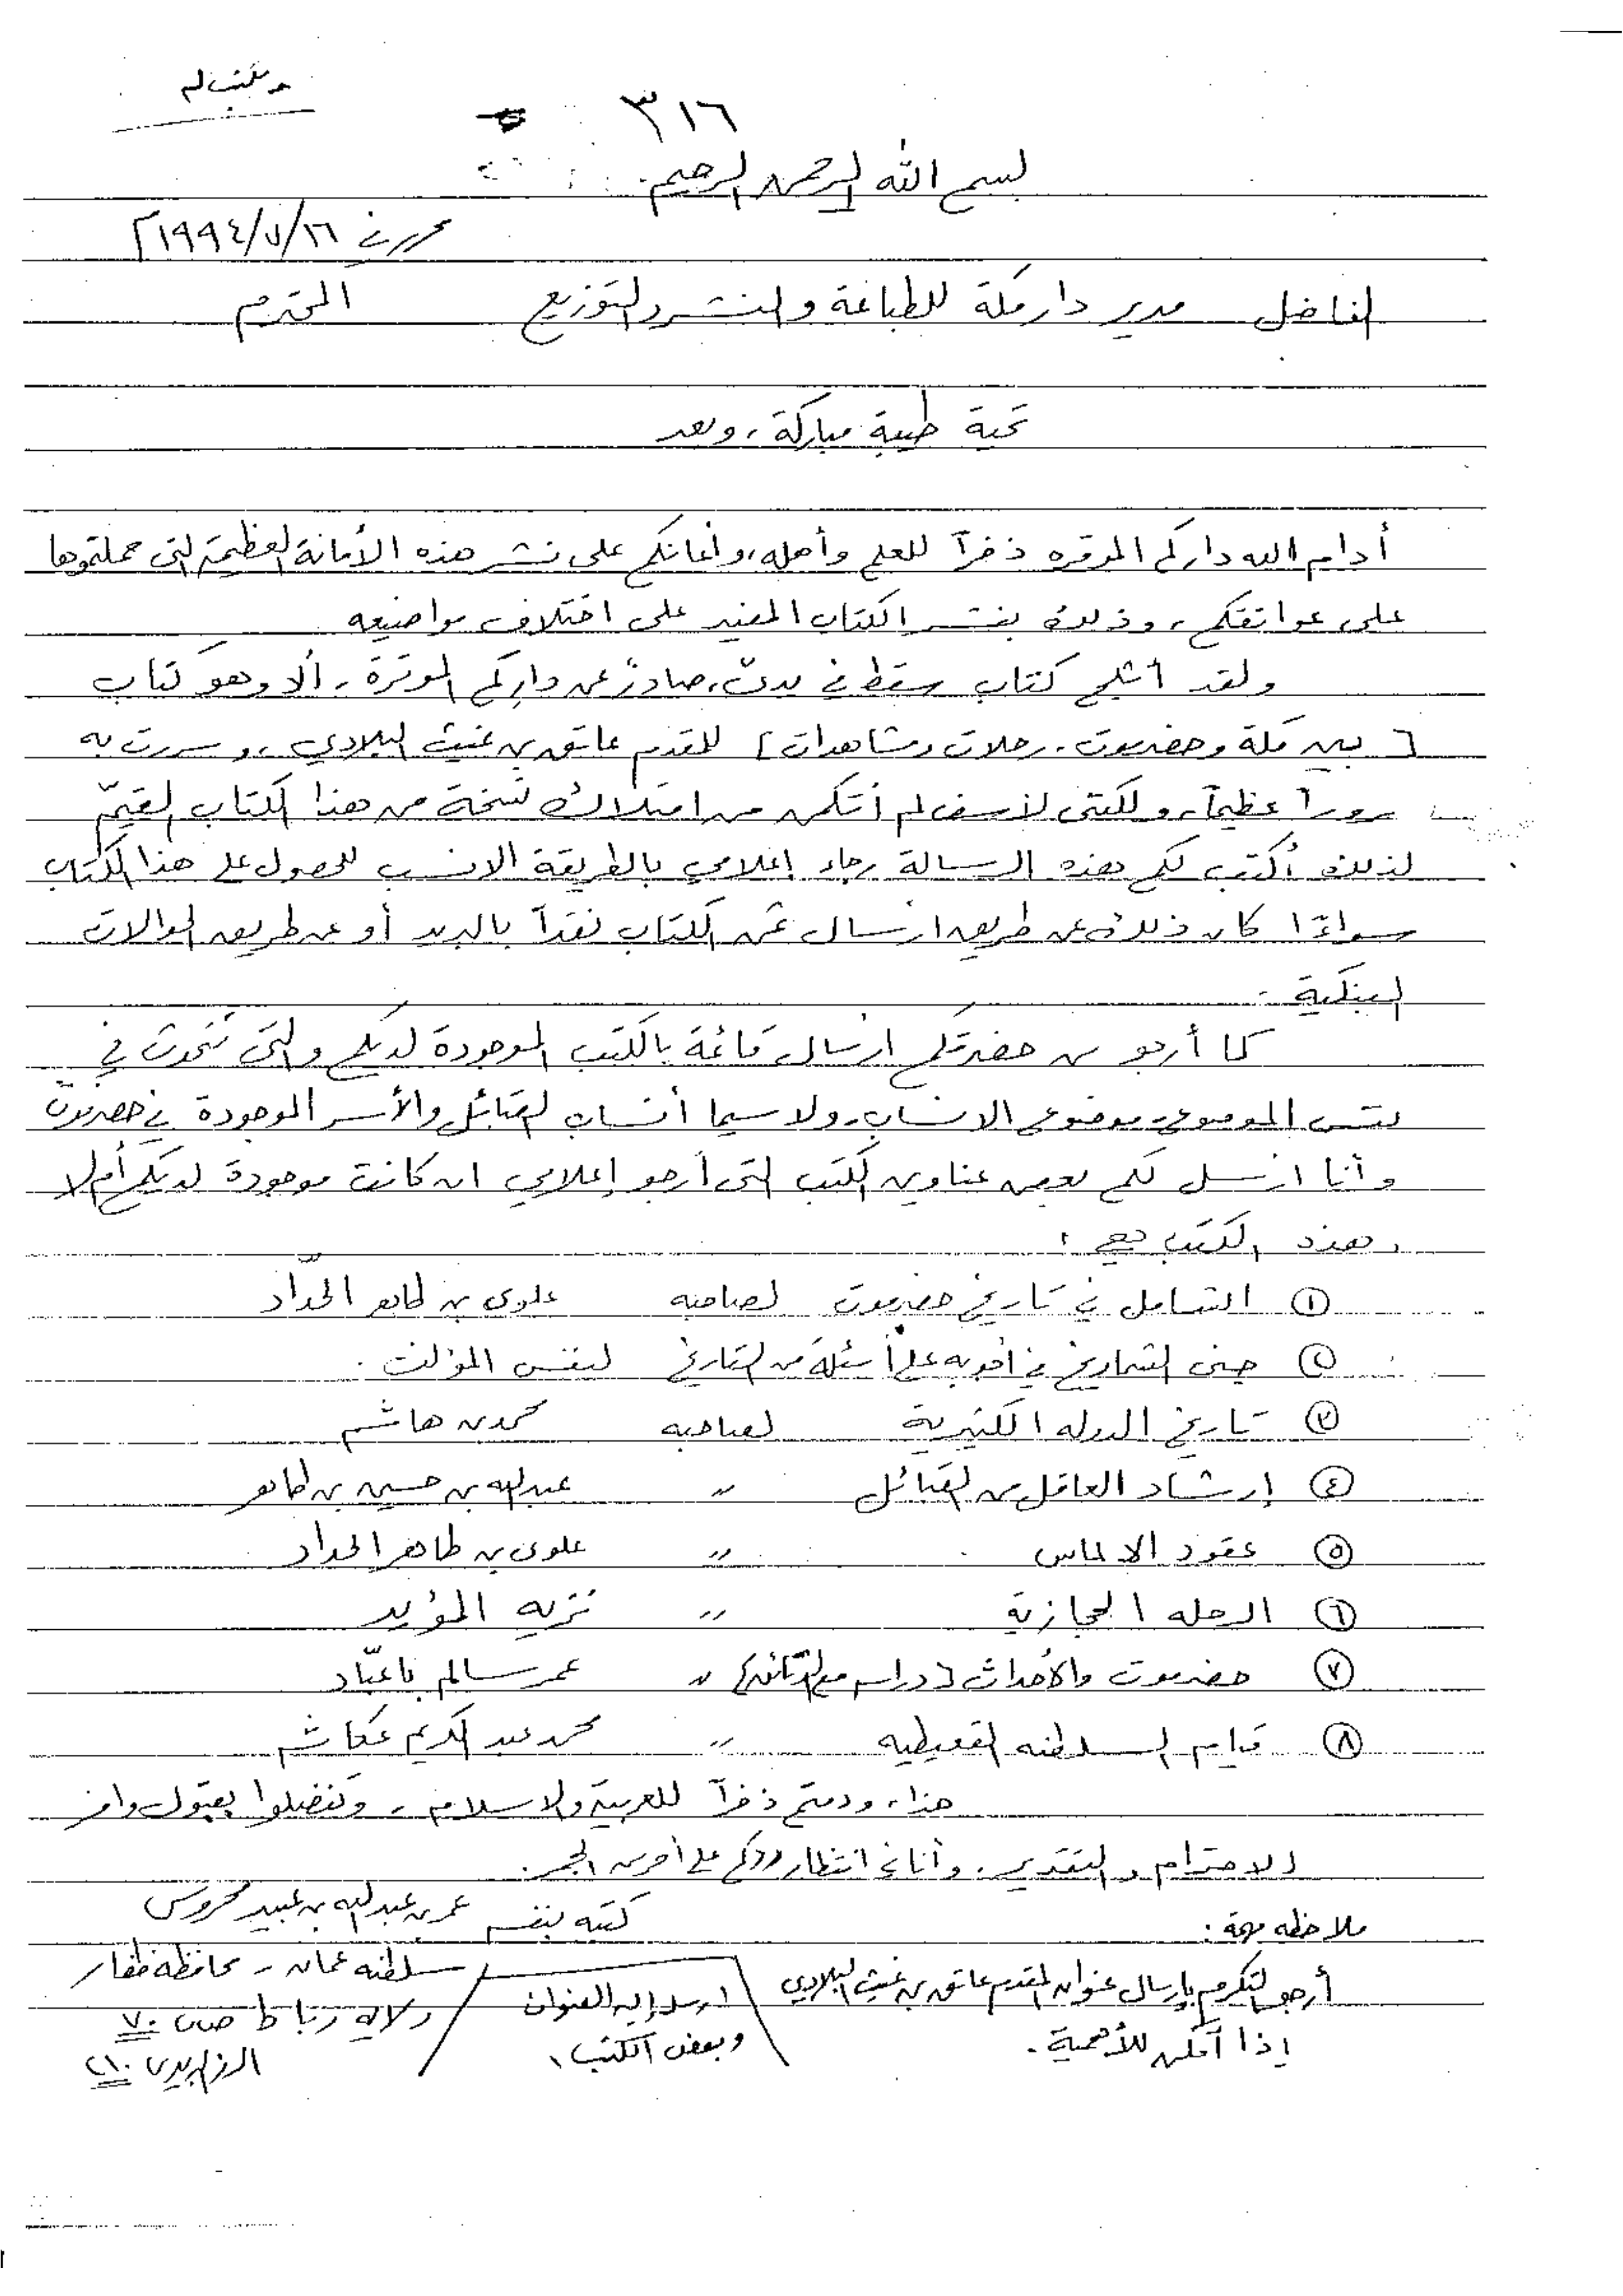 ٣١٦
بسم الله الرحمن الرحيم
حرر في ١٦/٧/١٩٩٤م
الفاضل مدير دار مكة للطباعة والنشر والتوزيع المحترم
تحية طيبة مباركة، وبعد
أدام الله داركم الموقره ذخراً للعلم وأهله، وأعانكم على نشر هذه الأمانة العظيمة التي حملتموها
على عواتقكم، وذلك بنشر الكتاب المفيد على اختلاف مواضيعه
ولقد كتاب سقط في يدي، صادرٌ عن داركم الموقرة، ألا وهو كتاب
[بين مكة وحضرموت، رحلات ومشاهدات] للمقدم عاتق بن غيث البلادي، وسررت به
سروراً عظيماً، ولكني للأسف لم أتمكن من امتلاك نسخة من هذا الكتاب القيّم
لذلك أكتب لكم هذه الرسالة رجاء إعلامي بالطريقة الانسب للحصول على هذا الكتاب
سواءً كان ذلك عن طريق ارسال ثمن الكتاب نقداً بالبريد أو عن طريق الحوالات
البنكية.
كما أرجو من حضرتكم ارسال قائمة بالكتب الموجودة لديكم والتي تتحدث في
نفس الموضوع، موضوع الانساب، ولا سيما أنساب القبائل والأسر الموجودة في حضرموت
وأنا ارسل لكم بعض عناوين الكتب التي أرجو إعلامي ان كانت موجودة لديكم أم لا
وهذه الكتب هي:
① الشامل في تاريخ حضرموت لصاحبه علوي بن طاهر الحدّاد
② جنى الشماريخ في اجوبه على أسئلة من التاريخ لنفس المؤلف.
③ تاريخ الدوله الكثيرية لصاحبه محمد بن هاشم
④ إرشاد العاقل من القبائل " عبدالله بن حسين بن طاهر
⑤ عقود الالماس " علوي بن طاهر الحداد
⑥ الرحله الحجازية " نزيه المؤيد
⑦ حضرموت والأحداث " عمر سالم باعبّاد
⑧ قيام السلطنه القعيطيه " محمد عبد الكريم عكاشه
هذا، ودمتم ذخراً للعربية والاسلام، وتفضلوا بقبول وافر
الاحترام والتقدير، وأنا في انتظار ردكم على أحر من الجمر.
كتبه بنفسه عمر بن عبدالله بن عبيد محروس
سلطنه عمان - محافظة ظفار
ولايه رباط ص.ب ٧٠
الرمز البريدي ٢١٠
ملاحظه مهمة:
أرجو التكرم بإرسال عنوان المقدم عاتق بن غيث البلادي
إذا أمكن للأهمية.
ارسل إليه العنوان
وبعض الكتب